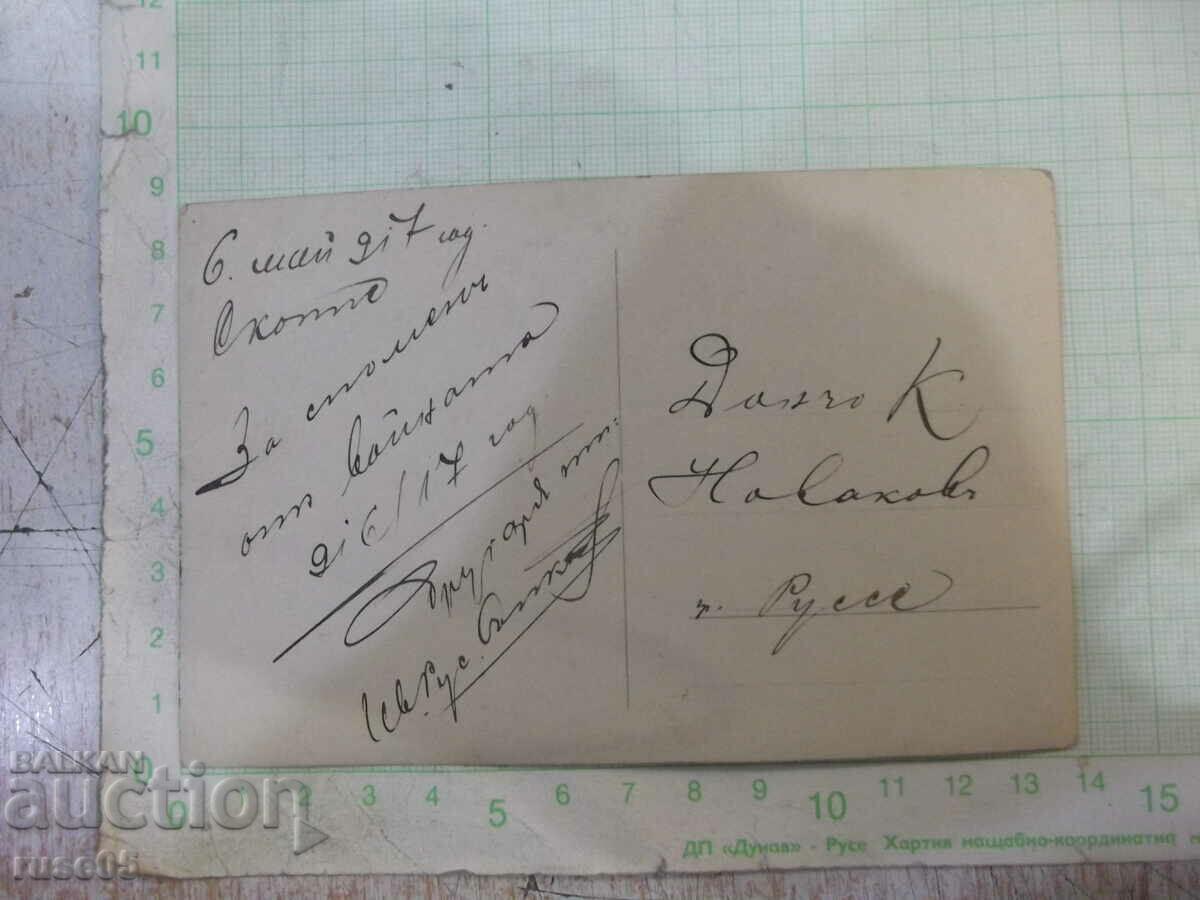 6. май 917 год.
Скопие
За споменъ
отъ войната
916/17 год.
Другаря ти:
Ив. Рус.
Данчо К
Новаковъ
гр. Руссе
12
10
9
8
7
6
5
4
3
2
1
0
0 1 2 3 4 5 6 7 8 9 10 11 12 13 14 15
ДП «Дунав» - Русе Хартия мащабно-координатна
BALKAN
auction
ruse05